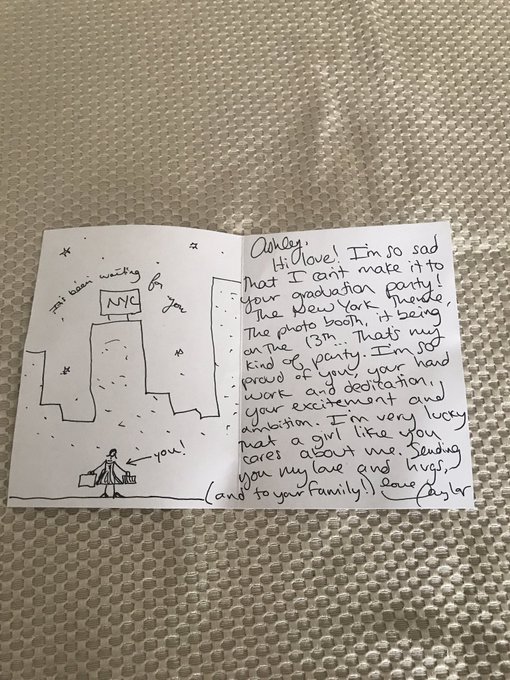 it's been waiting for you
NYC
you!
Ashley,
Hi love! I'm so sad
that I can't make it to
your graduation party!
The New York theme,
the photo booth, it being
on the 13th... That's my
kind of party. I'm so
proud of you, your hard
work and deditation,
your excitement and
ambition. I'm very lucky
that a girl like you
cares about me. Sending
you my love and hugs,
(and to your family!) love Taylor